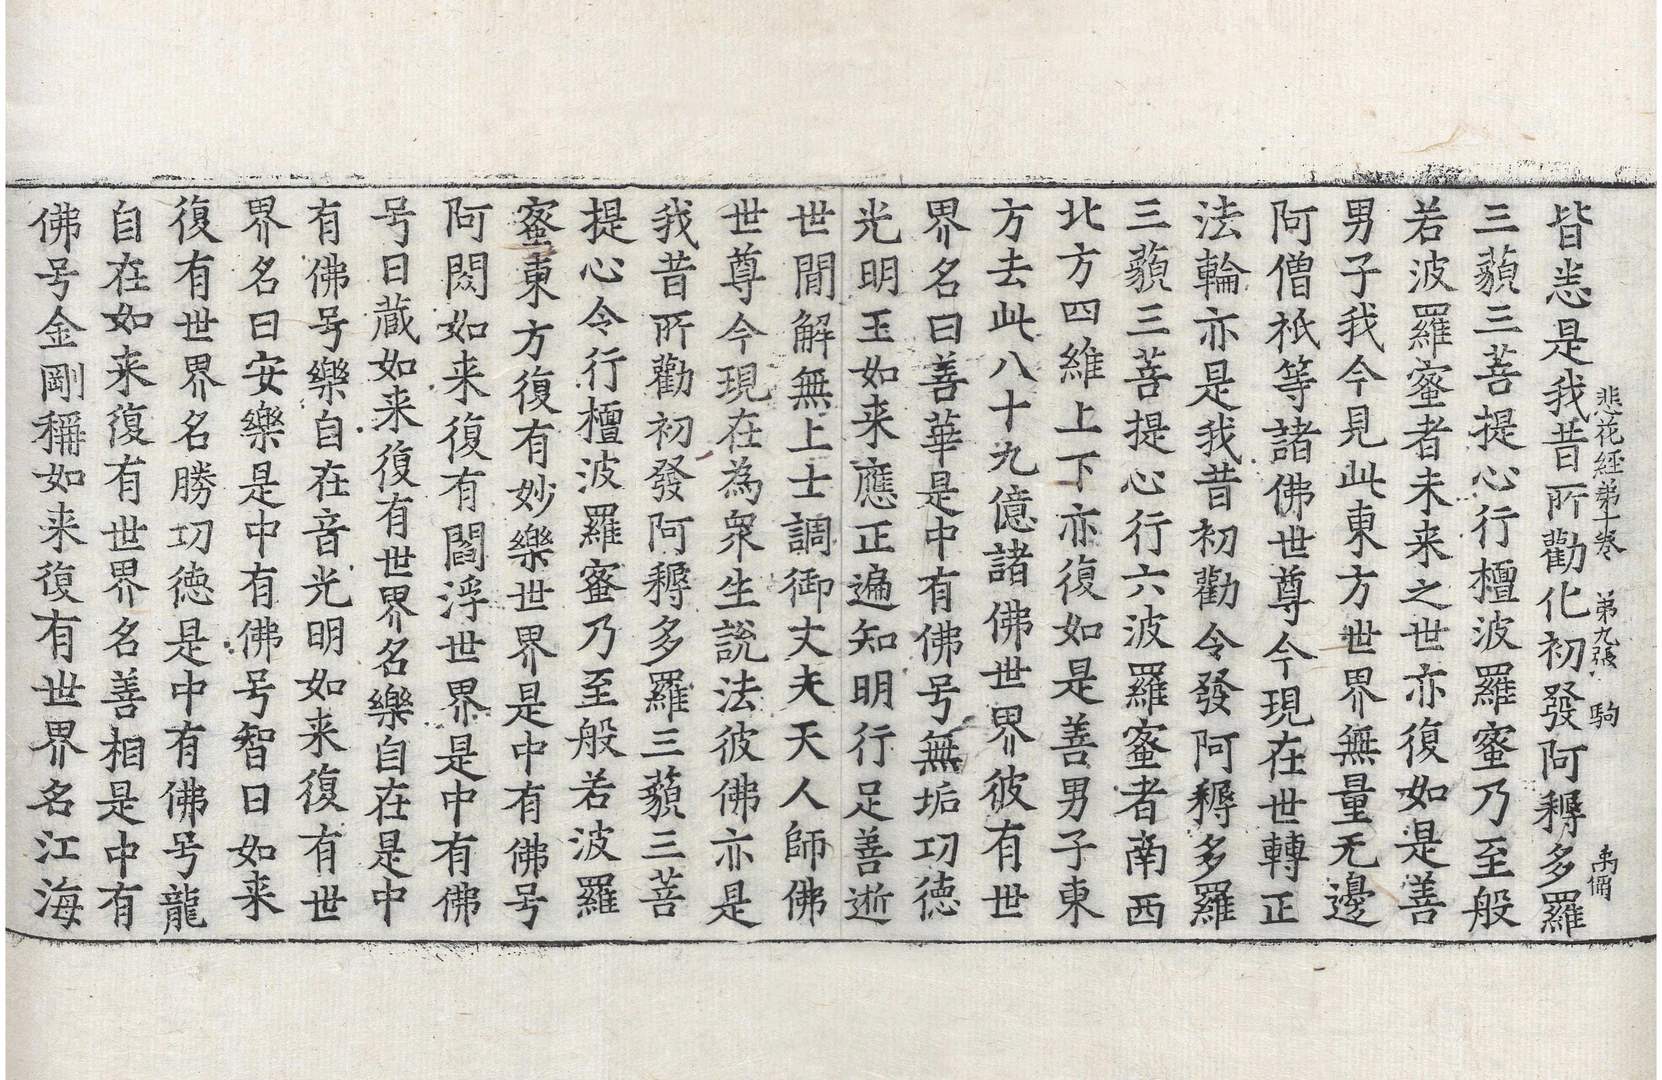 悲花経第十卷　第九張　駒
皆悉是我昔所勸化初發阿耨多羅
三藐三菩提心行檀波羅蜜乃至般
若波羅蜜者未来之世亦復如是善
男子我今見此東方世界無量无邊
阿僧祇等諸佛世尊今現在世轉正
法輪亦是我昔初勸令發阿耨多羅
三藐三菩提心行六波羅蜜者南西
北方四維上下亦復如是善男子東
方去此八十九億諸佛世界彼有世
界名曰善華是中有佛号無垢功德
光明王如来應正遍知明行足善逝
世間解無上士調御丈夫天人師佛
世尊今現在為衆生說法彼佛亦是
我昔所勸初發阿耨多羅三藐三菩
提心令行檀波羅蜜乃至般若波羅
蜜東方復有妙樂世界是中有佛号
阿閦如来復有閻浮世界是中有佛
号曰蔵如来復有世界名樂自在是中
有佛号樂自在音光明如来復有世
界名曰安樂是中有佛号智日如来
復有世界名勝功徳是中有佛号龍
自在如来復有世界名善相是中有
佛号金剛稱如来復有世界名江海